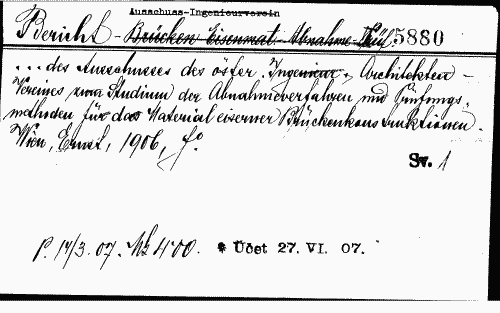 Ausschuss-Ingenieurverein
Bericht - Brücken Eisenmat. Abnahme- 5880
... des Ausschusses des öster. Ingenieur. & Architekten-
Vereines zum Studium der Abnahmeverfahren und Prüfungs-
methoden für das Material eiserner Brückenkonstruktionen.
Wien, Ernst, 1906, f°.
Sv. 1
p. 14/3. 07. 4.00. * Účet 27. VI. 07.